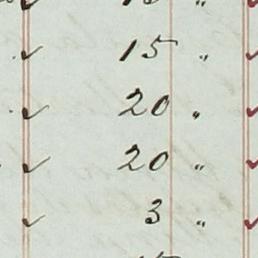 ✓ 15 " ✓
✓ 20 " ✓
✓ 20 " ✓
✓ 3 " ✓